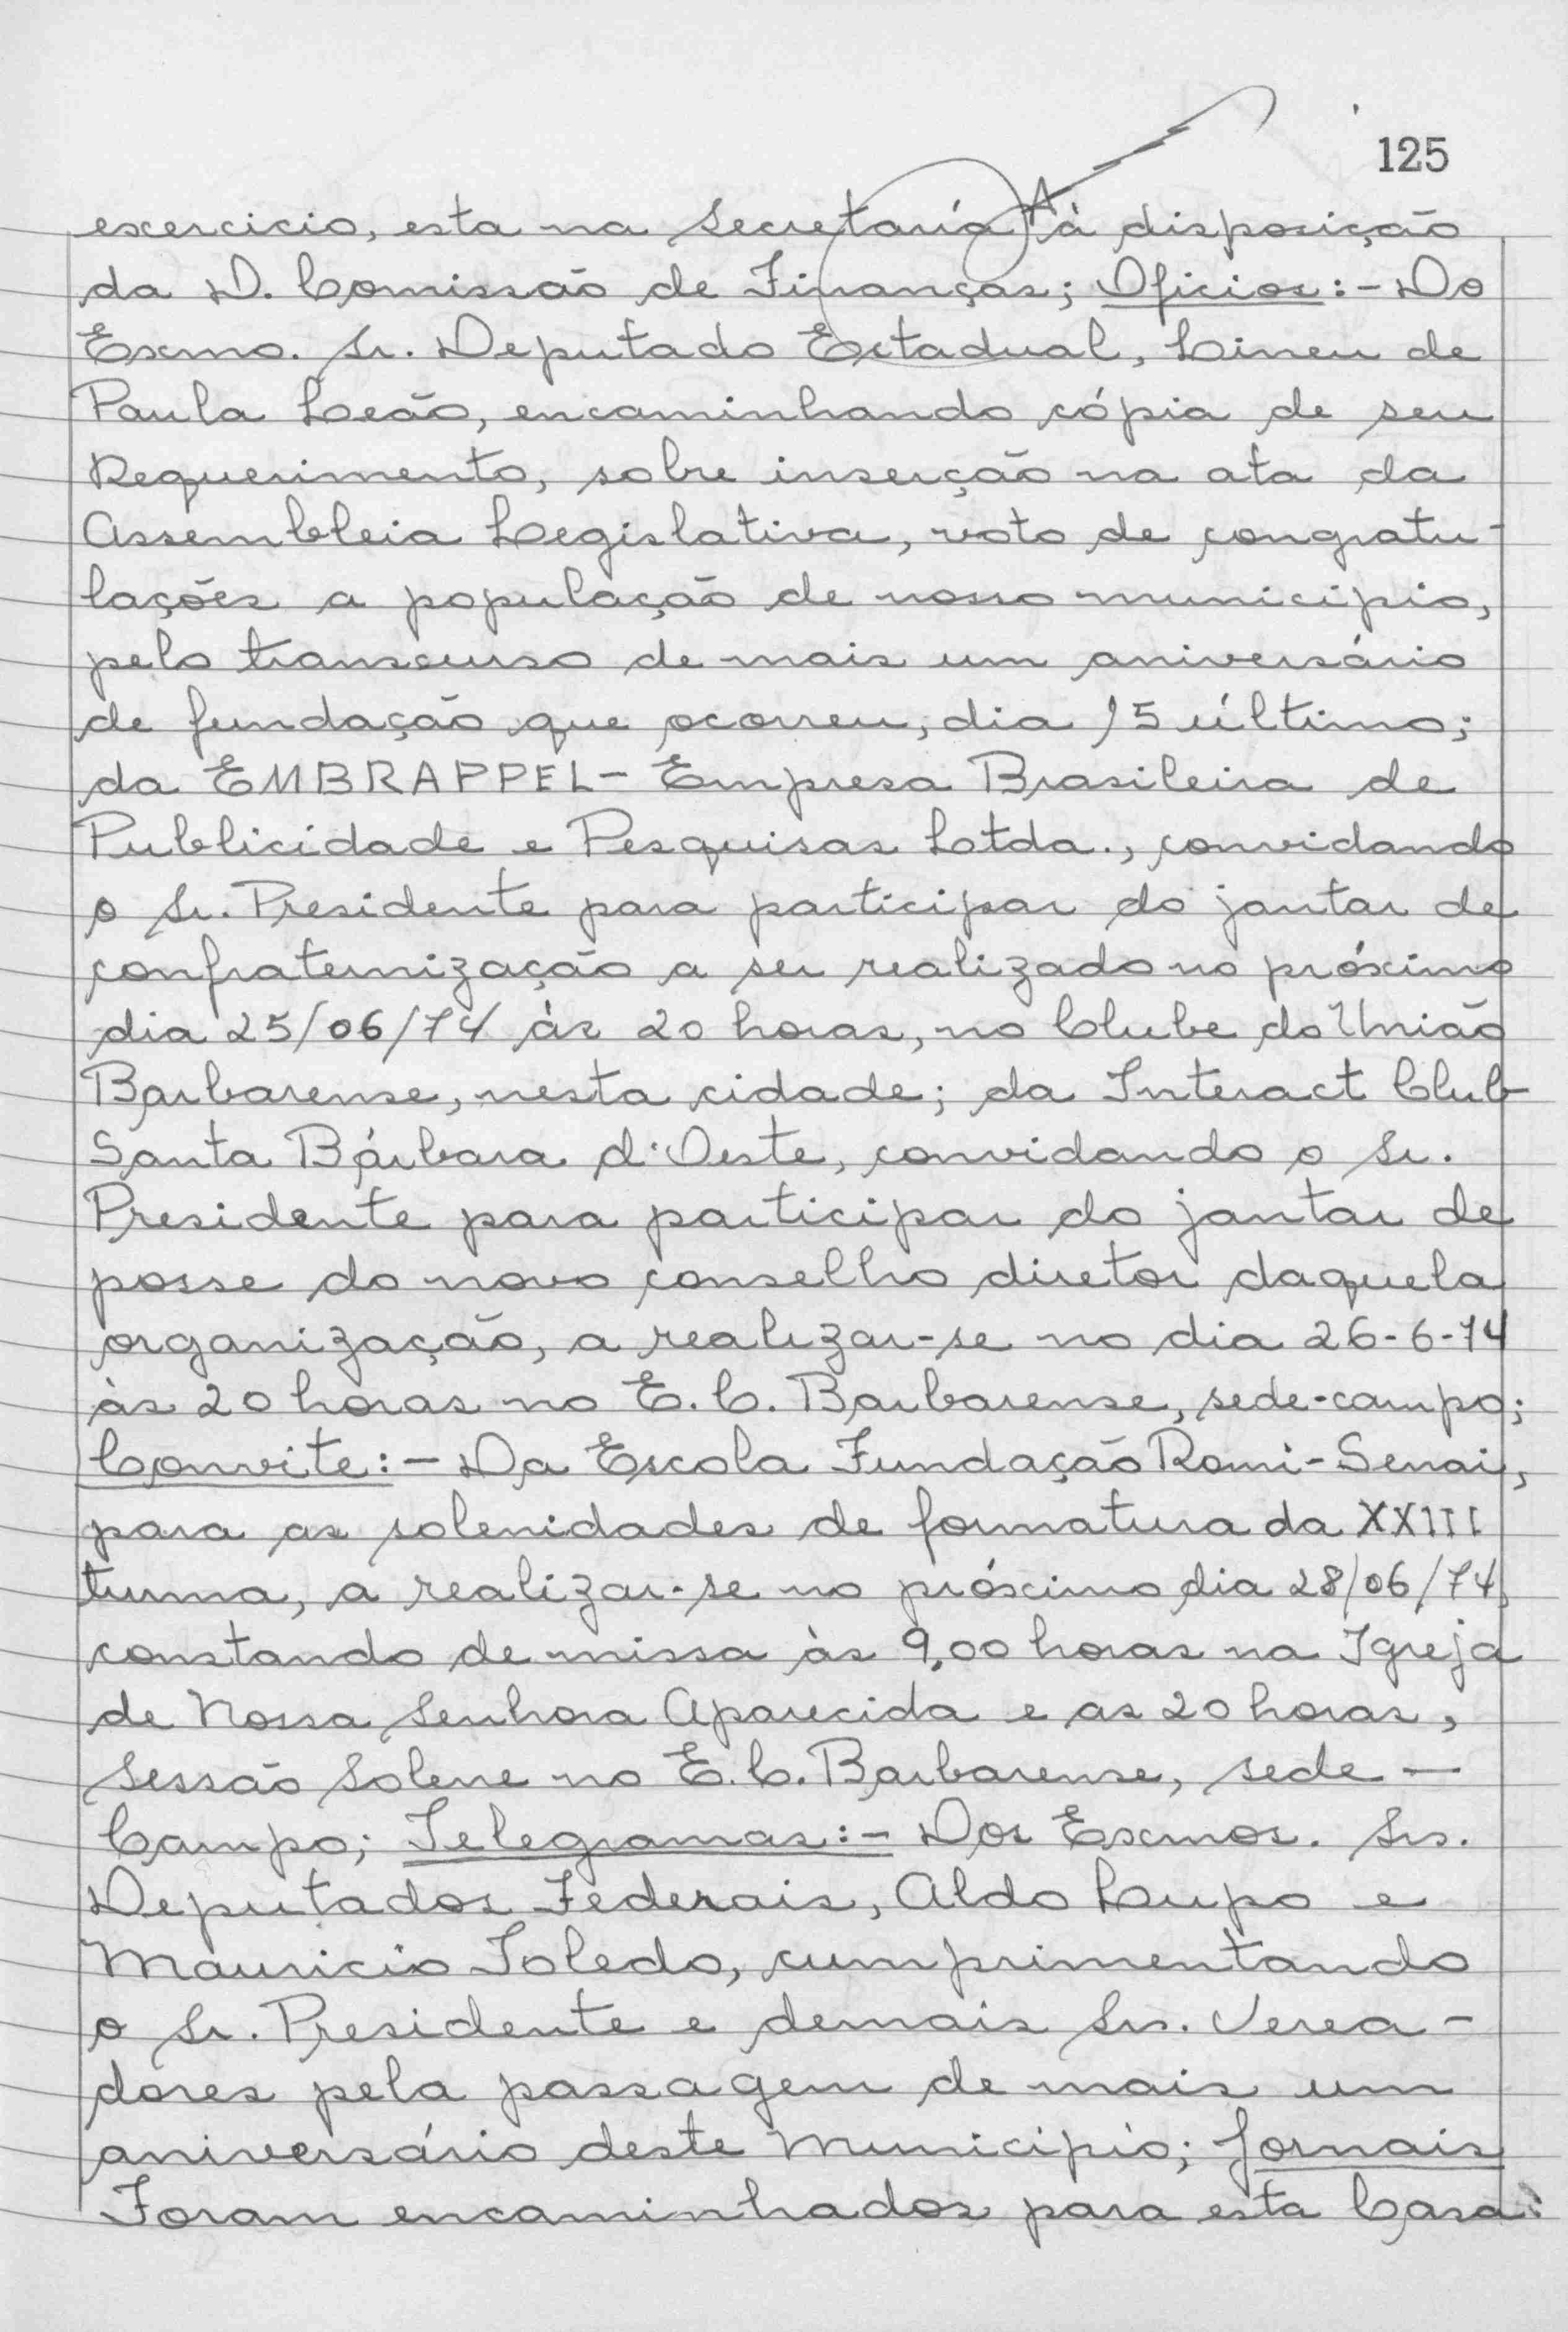 125
exercicio, esta na Secretaria à disposição
da D. Comissão de Finanças; Oficios:- Do
Exmo. Sr. Deputado Estadual, Lineu de
Paula Leão, encaminhando cópia de seu
Requerimento, sobre inserção na ata da
Assembleia Legislativa, voto de congratu-
lações a população de nosso municipio,
pelo transcurso de mais um aniversário
de fundação que ocorreu, dia 15 último;
da EMBRAPPEL- Empresa Brasileira de
Publicidade e Pesquisas Ltda., convidando
o Sr. Presidente para participar do jantar de
confraternização a ser realizado no próximo
dia 25/06/74 às 20 horas, no Clube do União
Barbarense, nesta cidade; da Interact Club
Santa Bárbara d'Oeste, convidando o Sr.
Presidente para participar do jantar de
posse do novo conselho diretor daquela
organização, a realizar-se no dia 26-6-74
às 20 horas no E.C. Barbarense, sede-campo;
Convite:- Da Escola Fundação Romi-Senai,
para as solenidades de formatura da XXIII
turma, a realizar-se no próximo dia 28/06/74,
constando de missa às 9,00 horas na Igreja
de Nossa Senhora Aparecida e as 20 horas,
Sessão Solene no E.C. Barbarense, sede -
Campo; Telegramas:- Dos Exmos. Srs.
Deputados Federais, Aldo Lupo e
Mauricio Toledo, cumprimentando
o Sr. Presidente e demais Srs. Verea-
dores pela passagem de mais um
aniversário deste Municipio; Jornais
Foram encaminhados para esta Casa: